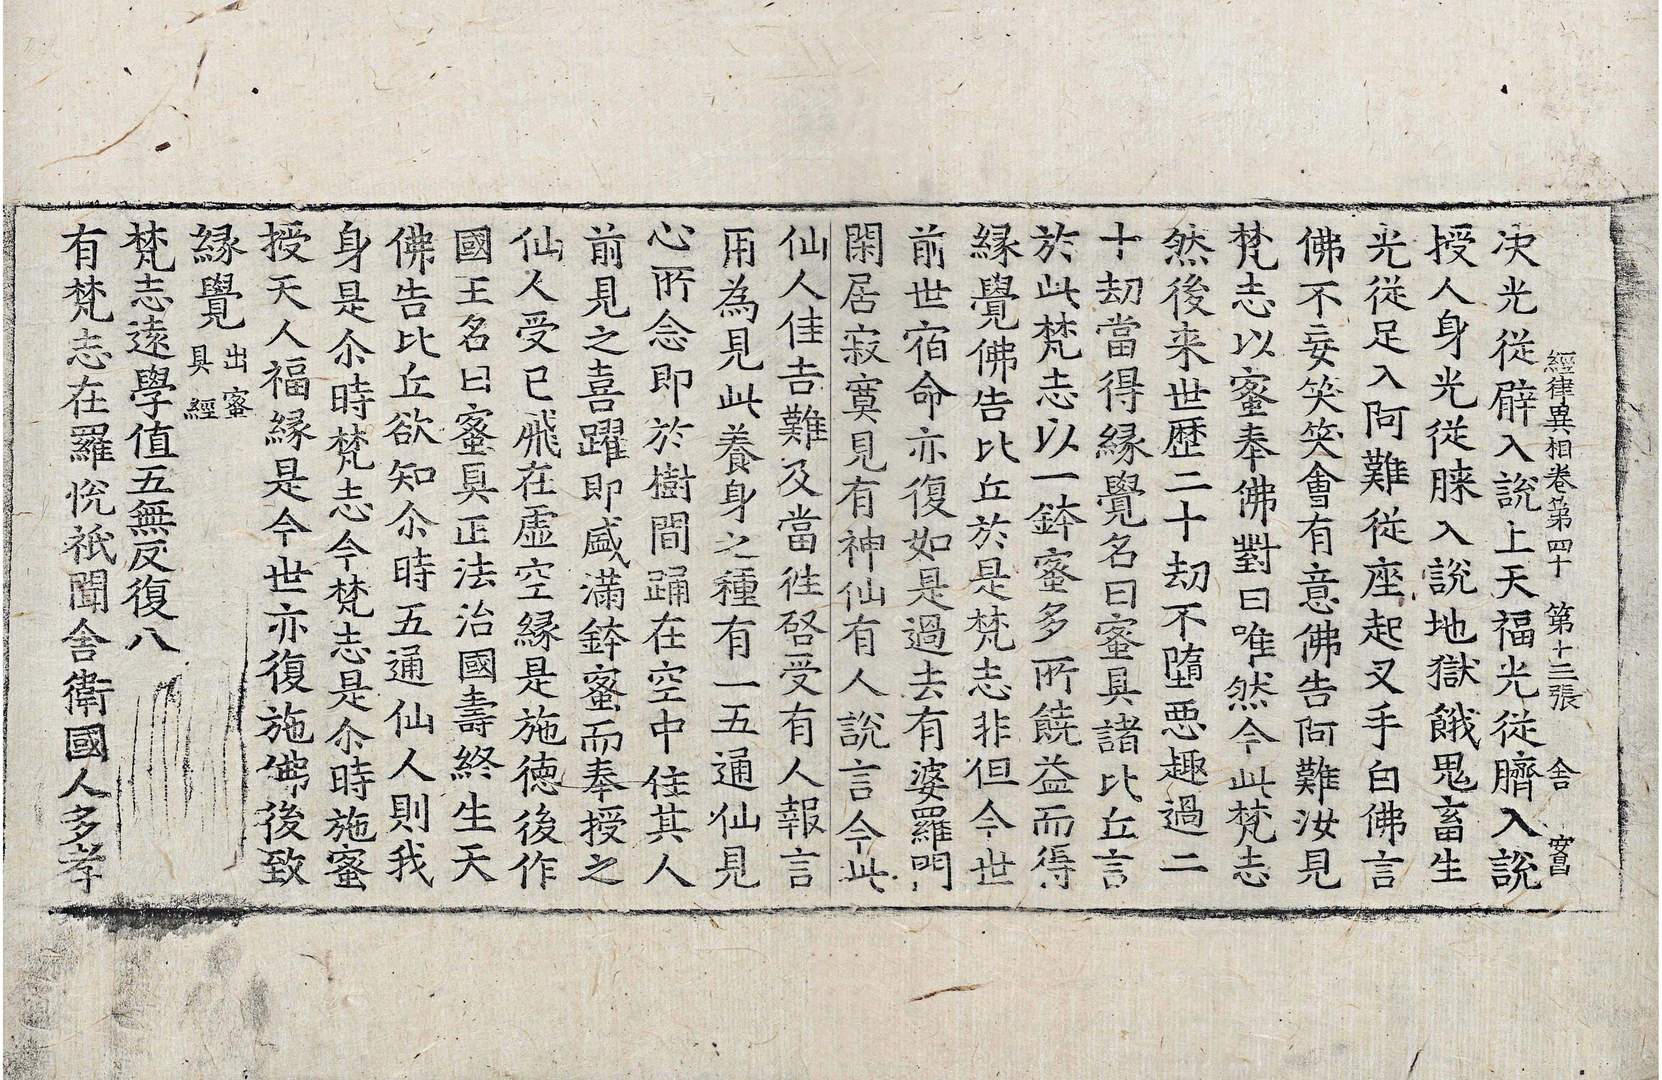 經律異相卷第四十 第十三張 舍
決光從臂入說上天福光從臍入說
授人身光從膝入說地獄餓鬼畜生
光從足入阿難從座起叉手白佛言
佛不妄笑笑會有意佛告阿難汝見
梵志以蜜奉佛對曰唯然今此梵志
然後来世歷二十劫不墮惡趣過二
十劫當得緣覺名曰蜜具諸比丘言
於此梵志以一鉢蜜多所饒益而得
緣覺佛告比丘於是梵志非但今世
前世宿命亦復如是過去有婆羅門
閑居寂寞見有神仙有人說言今此
仙人佳吉難及當徃啓受有人報言
用為見此養身之種有一五通仙見
心所念即於樹間踊在空中住其人
前見之喜躍即盛滿鉢蜜而奉授之
仙人受已飛在虛空緣是施德後作
國王名曰蜜具正法治國壽終生天
佛告比丘欲知尒時五通仙人則我
身是尒時梵志今梵志是尒時施蜜
授天人福緣是今世亦復施佛後致
緣覺 出蜜具經
梵志遠學值五無反復八
有梵志在羅悅祇聞舍衛國人多孝